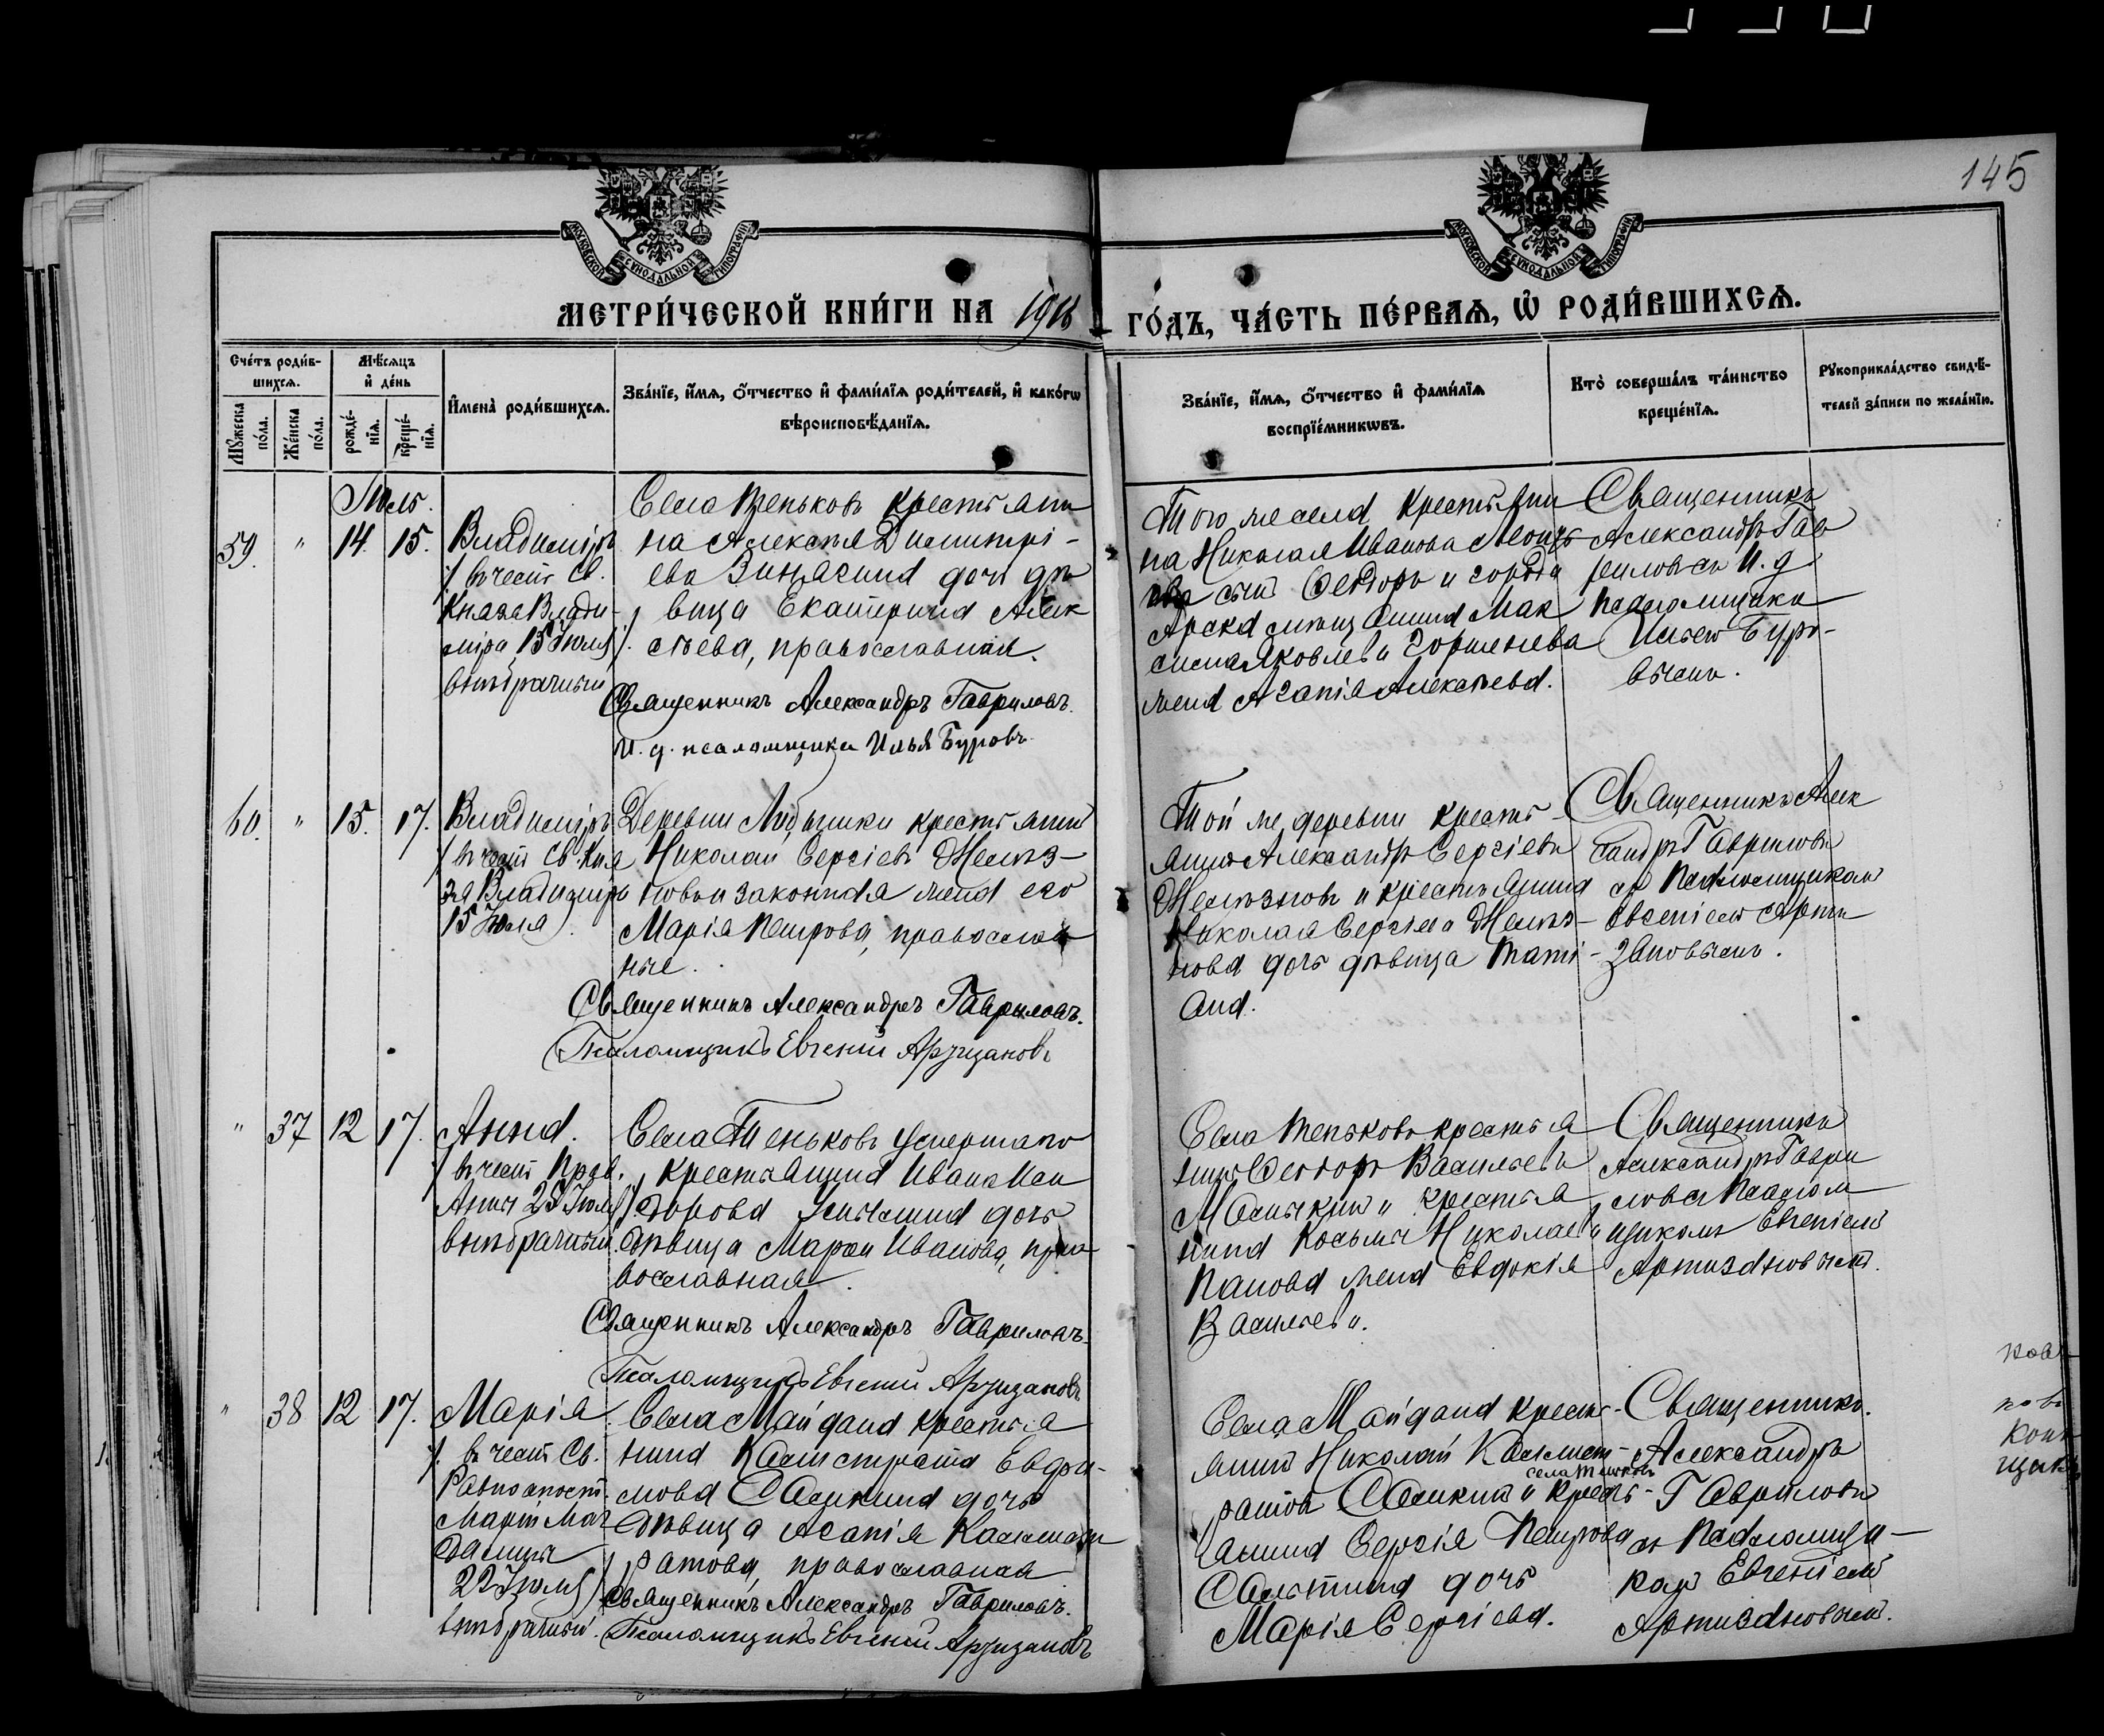 145
МОСКОВСКОЙ СѴНОДАЛЬНОЙ ТИПОГРАФІИ
МОСКОВСКОЙ СѴНОДАЛЬНОЙ ТИПОГРАФІИ
МЕТРИ́ЧЕСКОЙ КНИ́ГИ НА 1916
ГО́ДЪ, ЧА́СТЬ ПЕ́РВАѦ, Ѡ҆ РОДИ́ВШИХСѦ.
Сче́тъ роди́в-
шихсѧ.
Мꙋ́жеска по́ла.
Же́нска по́ла.
Мѣ́сѧцъ
и҆ де́нь
рожде́-
нїѧ.
креще́-
нїѧ.
И҆мена̀ роди́вшихсѧ.
Зва́нїе, и҆́мѧ, ѻ҆́тчество и҆ фами́лїѧ роди́телей, и҆ како́гѡ
вѣроисповѣ́данїѧ.
Зва́нїе, и҆́мѧ, ѻ҆́тчество и҆ фами́лїѧ
воспрїе́мникѡвъ.
Кто̀ соверша́лъ та́инство
креще́нїѧ.
Рꙋкоприкла́дство свидѣ́-
телей за́писи по жела́нїю.
Іюль.
59. " 14. 15.
Владиміръ
/въ честь Св.
Князя Влади-
міра 15 Іюля/.
внѣбрачный
Села Теньковъ крестьяни
на Алексѣя Димитрі-
ева дочь дѣ
вица Екатерина Алек
сѣева, православная.
Священникъ Александръ Гавриловъ.
И. д. псаломщика Илья Буровъ
Того же села крестьяни
на Николая Иванова
сынъ Ѳеодоръ и города
Арска мѣщанина Мак
сима Яковлева
жена Агапія Алексѣева.
Священникъ
Александръ Гав
риловъ съ И. д
псаломщика
Ильею Буро-
вымъ.
60. " 15. 17.
Владиміръ
/въ честь Св. Кня
зя Владиміра
15 Іюля)
Деревни крестьянинъ
Николай Сергіевъ Желѣз-
новъ и законная жена его
Марія Петрова, православ
ные.
Священникъ Александръ Гавриловъ.
Псаломщикъ Евгеній Артизановъ
Той же деревни кресть-
янинъ Александръ Сергіевъ
Желѣзновъ и крестьянина
Николая Сергіева Желѣз-
нова дочь дѣвица Тати-
ана.
Священникъ Алек
сандръ Гавриловъ
съ Псаломщикомъ
Евгеніемъ Арти
зановымъ.
" 37 12 17.
Анна.
/въ честь Прав.
Анны 25 Іюля/.
внѣбрачный
Села Теньковъ умершаго
крестьянина Ивана Иси
дорова дочь
дѣвица Марѳа Иванова, пра
вославная.
Священникъ Александръ Гавриловъ.
Псаломщикъ Евгеній Артизановъ
Села Теньковъ крестья
нинъ Ѳеодоръ Васильевъ
и крестья
нина Косьмы Николаева
Панова жена Евдокія
Васильева.
Священникъ
Александръ Гаври
ловъ съ Псалом
щикомъ Евгеніемъ
Артизановымъ.
" 38 12 17.
Марія
/въ честь Св.
Равноапост.
Маріи Маг
далины
22 Іюля)
внѣбрачный.
Села Майдана крестья
нина Каллистрата Евфи-
мова дочь
дѣвица Агапія Каллист
ратова, православная
Священникъ Александръ Гавриловъ.
Псаломщикъ Евгеній Артизановъ
Села Майдана кресть-
янинъ Николай Каллист-
села Теньковъ
ратовъ и кресть-
янина Сергія Петрова
дочь
Марія Сергіева.
Священникъ
Александръ
Гавриловъ
съ Псаломщи-
комъ Евгеніемъ
Артизановымъ.